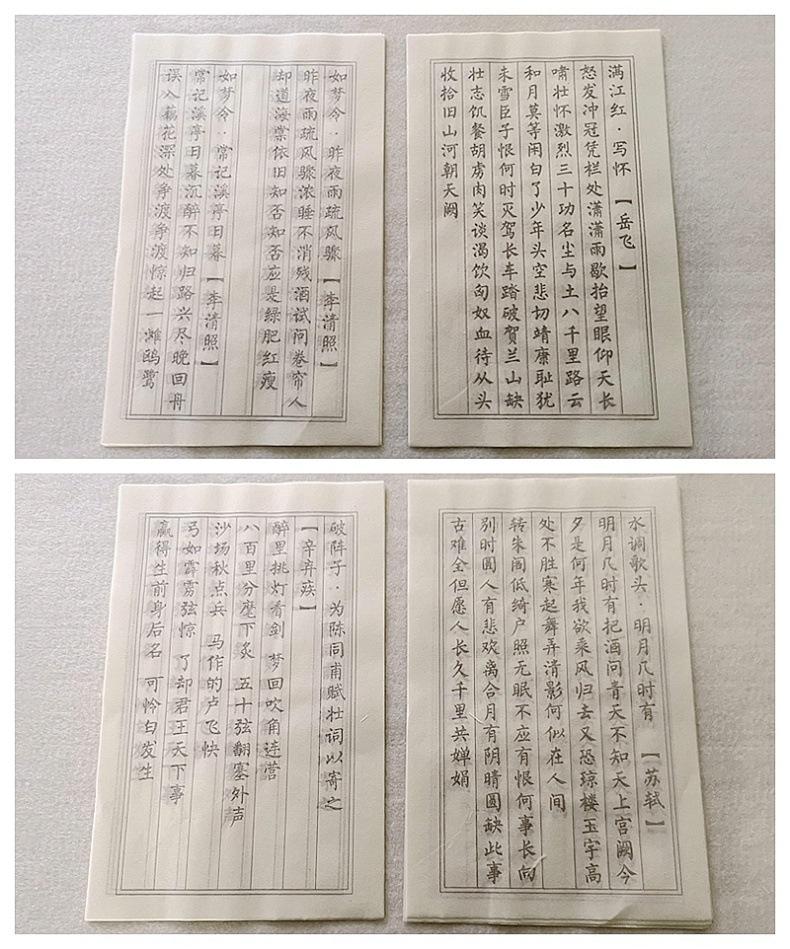 满江红·写怀 【岳飞】
怒发冲冠凭栏处潇潇雨歇抬望眼仰天长
啸壮怀激烈三十功名尘与土八千里路云
和月莫等闲白了少年头空悲切靖康耻犹
未雪臣子恨何时灭驾长车踏破贺兰山缺
壮志饥餐胡虏肉笑谈渴饮匈奴血待从头
收拾旧山河朝天阙
如梦令·昨夜雨疏风骤【李清照】
昨夜雨疏风骤浓睡不消残酒试问卷帘人
却道海棠依旧知否知否应是绿肥红瘦
如梦令·常记溪亭日暮【李清照】
常记溪亭日暮沉醉不知归路兴尽晚回舟
误入藕花深处争渡争渡惊起一滩鸥鹭
水调歌头·明月几时有 【苏轼】
明月几时有把酒问青天不知天上宫阙今
夕是何年我欲乘风归去又恐琼楼玉宇高
处不胜寒起舞弄清影何似在人间
转朱阁低绮户照无眠不应有恨何事长向
别时圆人有悲欢离合月有阴晴圆缺此事
古难全但愿人长久千里共婵娟
破阵子·为陈同甫赋壮词以寄之
【辛弃疾】
醉里挑灯看剑 梦回吹角连营
八百里分麾下炙 五十弦翻塞外声
沙场秋点兵 马作的卢飞快
弓如霹雳弦惊 了却君王天下事
赢得生前身后名 可怜白发生